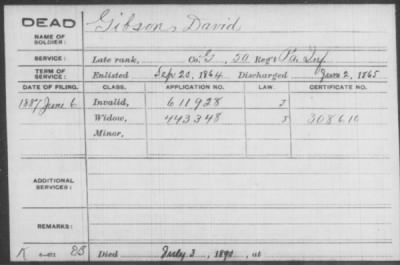 DEAD
NAME OF SOLDIER: Gibson, David
SERVICE: Late rank, Co. G, 50 Reg't Pa Inf
TERM OF SERVICE: Enlisted Sep 20, 1864 Discharged June 2, 1865
DATE OF FILING. CLASS. APPLICATION NO. LAW. CERTIFICATE NO.
1887 June 6 Invalid, 611928 J
Widow, 443348 308610
Minor,
ADDITIONAL SERVICES:
REMARKS:
K Died July 3, 1890, at